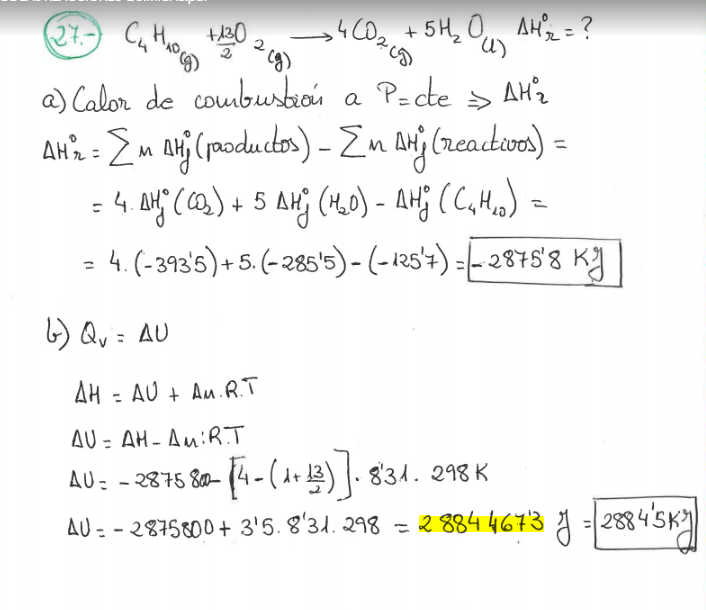 27.- C4H10(g) + 13/2 O2(g) → 4CO2(g) + 5H2O(l) ΔHºr = ?
a) Calor de combustión a P=cte ⇒ ΔHºr
ΔHºr = Σn ΔHºf (productos) - Σn ΔHºf (reactivos) =
= 4. ΔHºf (CO2) + 5 ΔHºf (H2O) - ΔHºf (C4H10) =
= 4. (-393'5) + 5. (-285'5) - (-125'7) = -2875'8 KJ
b) Qv = ΔU
ΔH = ΔU + Δn.R.T
ΔU = ΔH - Δn.R.T
ΔU = -2875800 - [4-(1+13/2)]. 8'31. 298K
ΔU = -2875800 + 3'5. 8'31. 298 = 2884467'3 J = 2884'5 KJ